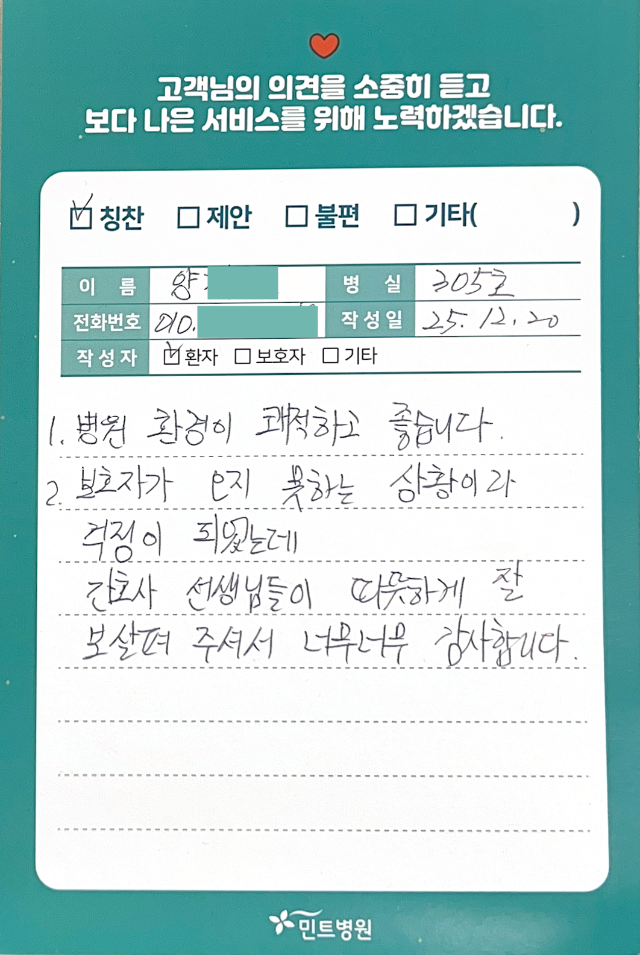 고객님의 의견을 소중히 듣고
보다 나은 서비스를 위해 노력하겠습니다.
☑ 칭찬 ☐ 제안 ☐ 불편 ☐ 기타( )
이 름 양 병 실 305호
전화번호 010. 작성일 25.12.20
작성자 ☑환자 ☐보호자 ☐기타
1. 병원 환경이 쾌적하고 좋습니다.
2. 보호자가 오지 못하는 상황이라
걱정이 되었는데
간호사 선생님들이 따뜻하게 잘
보살펴 주셔서 너무너무 감사합니다.
민트병원